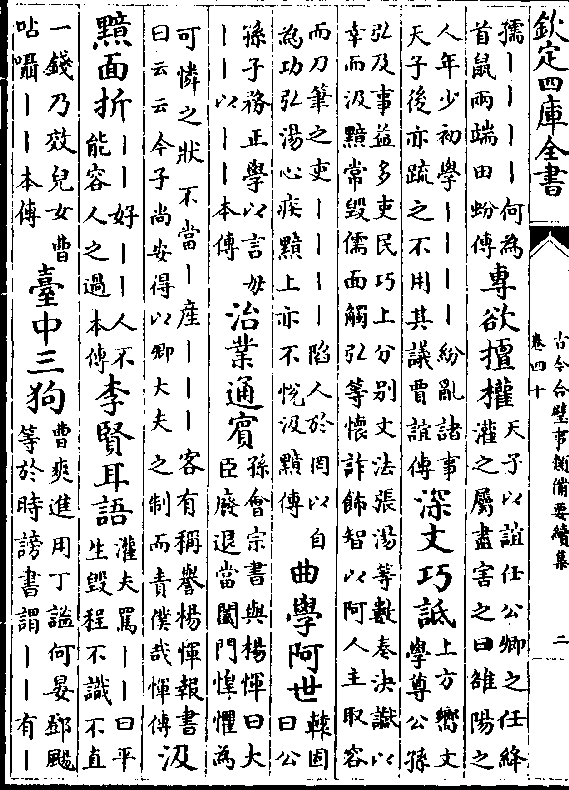 欽定四庫全書
古今合璧事類備要續集
卷四十
二
孺丨丨丨丨何為
首鼠兩端田蚡傳
專欲擅權
天子以誼任公卿之任絳
灌之屬盡害之曰雒陽之
人年少初學丨丨丨丨紛亂諸事
天子後亦疏之不用其議賈誼傳
深文巧詆
上方嚮文
學尊公孫
弘及事益多吏民巧上分别文法張湯等數奏決讞以
幸而汲黯常毀儒面觸弘等懷詐飾智以阿人主取容
而刀筆之吏丨丨丨丨陷人於罔以自
為功弘湯心疾黯上亦不悅汲黯傳
曲學阿世
轅固
曰公
孫子務正學以言毋
丨丨以丨丨本傳
治業通賓
孫會宗書與楊惲曰大
臣廢退當闔門惶懼為
可憐之狀不當丨産丨丨丨客有稱譽楊惲報書
曰云云今子尚安得以卿大夫之制而責僕哉惲傳
汲
黯面折
丨丨好丨丨人不
能容人之過本傳
李賢耳語
灌夫罵丨丨曰平
生毀程不識不直
一錢乃效兒女曹
呫囁丨丨本傳
臺中三狗
曹爽進用丁謐何晏鄧颺
等於時謗書謂丨丨有丨